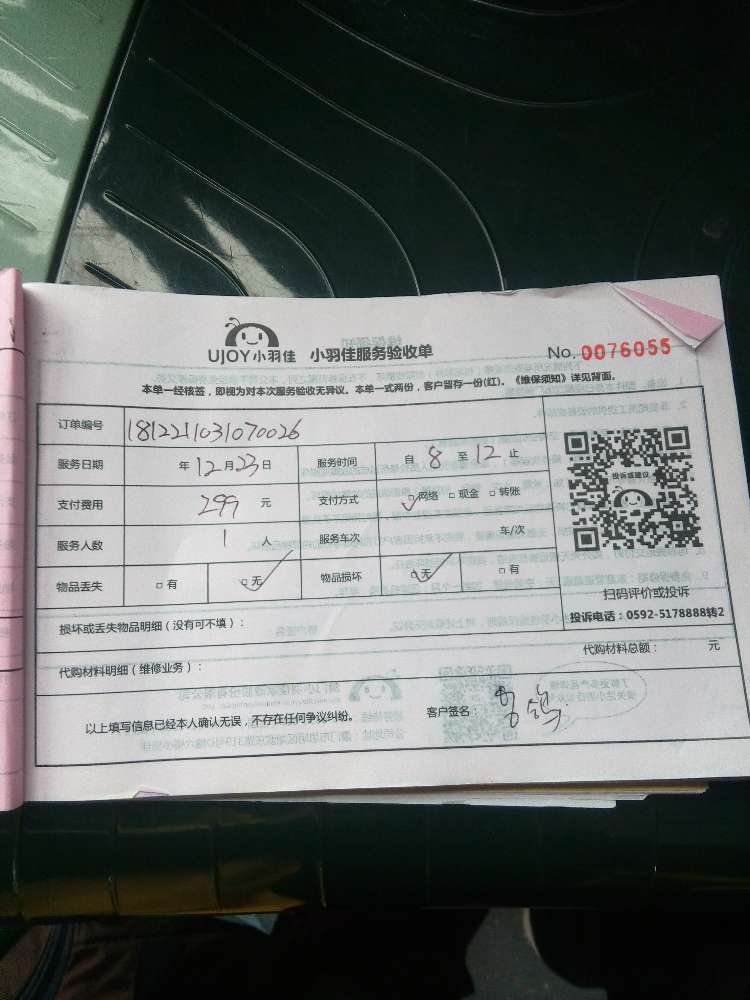 UJOY小羽佳 小羽佳服务验收单 No. 0076055
本单一经核签，即视为对本次服务验收无异议。本单一式两份，客户留存一份(红)。《维保须知》详见背面。
订单编号 181221031070026
服务日期 年12月23日 服务时间 自 8 至 12 止
支付费用 299 元 支付方式 网络 现金 转账
服务人数 1 人 服务车次 车/次
物品丢失 有 无 物品损坏 无 有
投诉或建议
扫码评价或投诉
投诉电话：0592-5178888转2
损坏或丢失物品明细（没有可不填）：
代购材料明细（维修业务）： 代购材料总额： 元
以上填写信息已经本人确认无误，不存在任何争议纠纷。 客户签名：